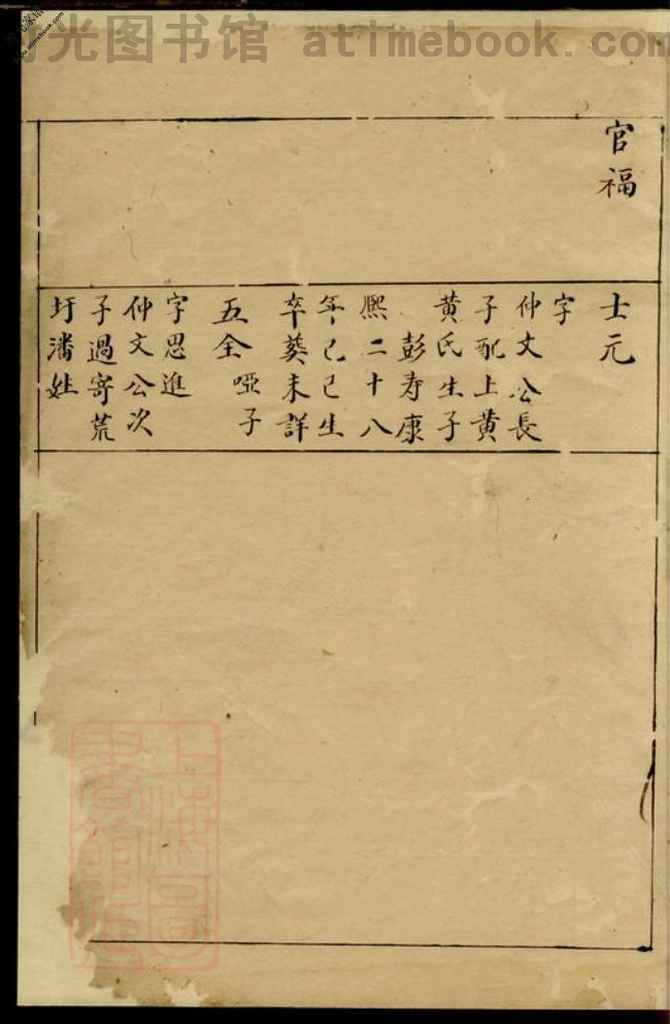 时光图书馆 atimebook.com
官福
士元
字
仲文公長
子配上黄
黄氏生子
彭寿康
熙二十八
年己巳生
卒葵未詳
五全 啞子
字思進
仲文公次
子過寄荒
圩潘姓